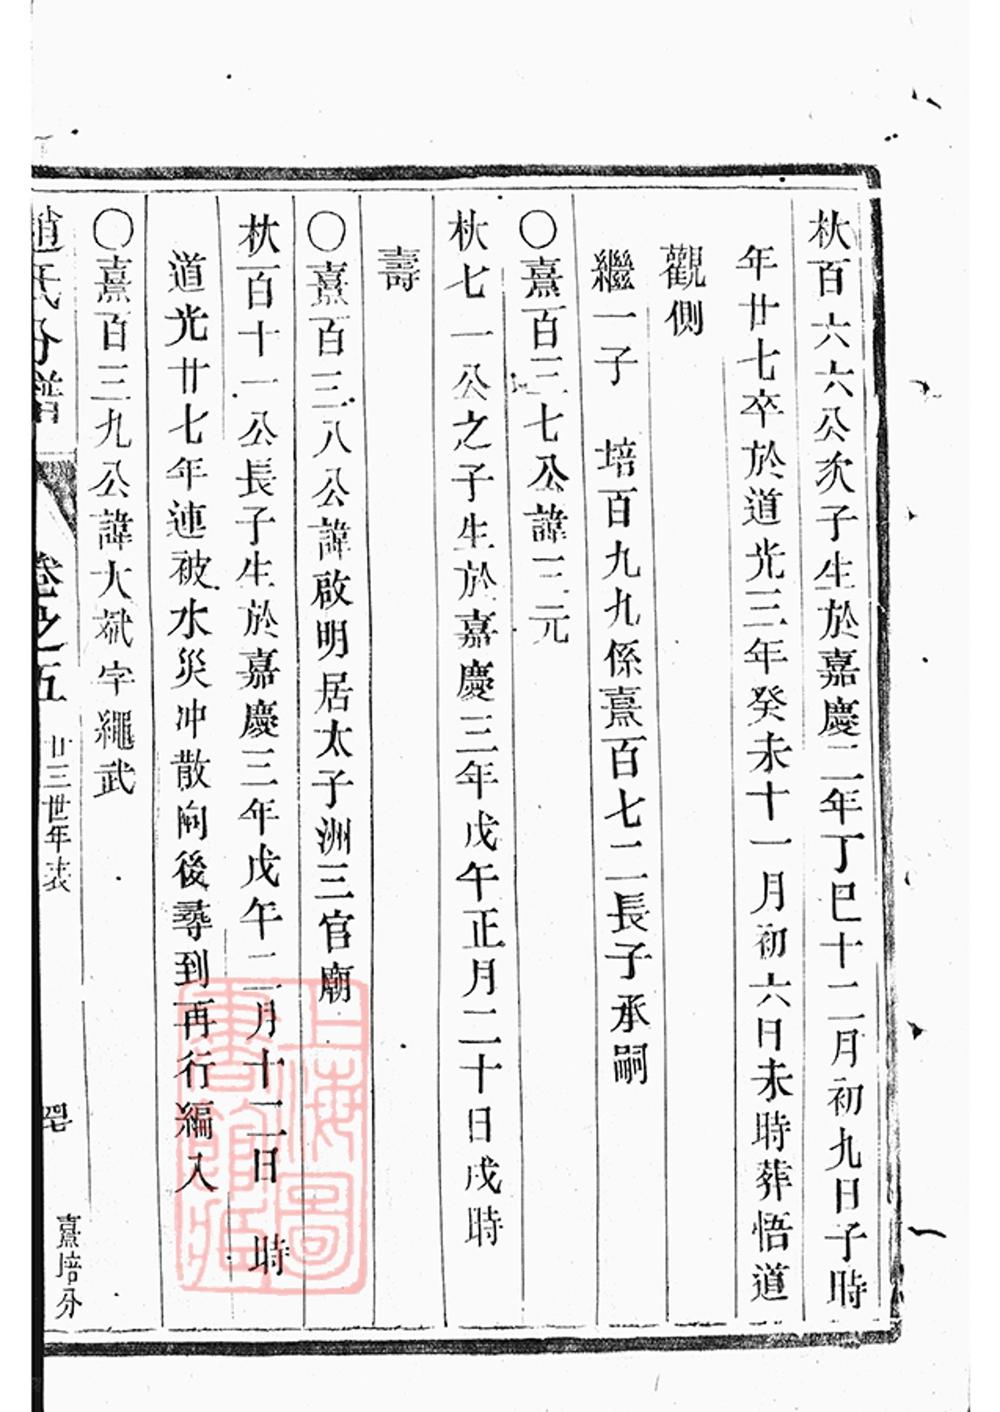 杕百六六公次子生於嘉慶二年丁巳十二月初九日子時
年廿七卒於道光三年癸未十一月初六日未時葬悟道
觀側
繼一子　培百九九係熹百七二長子承嗣
○熹百三七公諱三元
杕七一公之子生於嘉慶三年戊午正月二十日戌時
壽
○熹百三八公諱啟明居太子洲三官廟
杕百十一公長子生於嘉慶三年戊午二月十二日　時
道光廿七年連被水災冲散向後尋到再行編入
○熹百三九公諱大斌字繩武
趙氏分譜　卷之五　廿三世年表　熹培分
上海圖書館藏